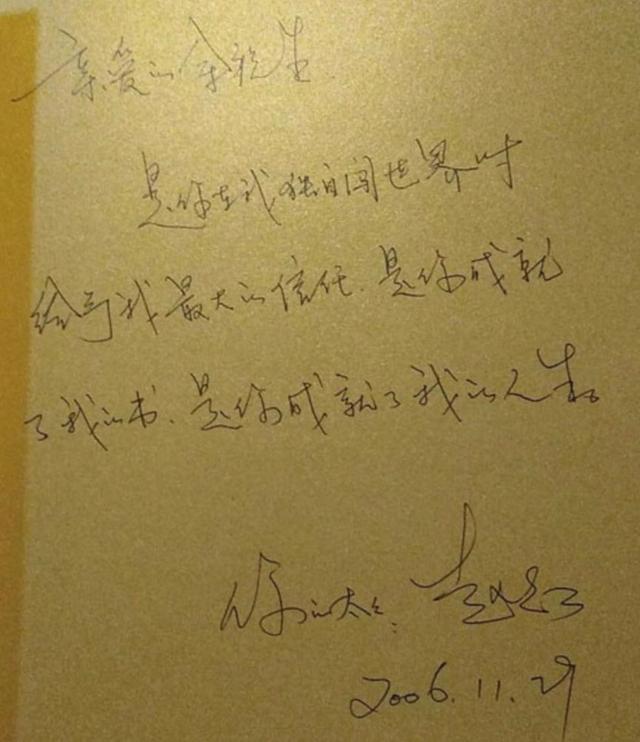 亲爱的余秋生
是你在我独自闯世界时
给予我最大的信任.是你成就
了我的书、是你成就了我的人生。
你的太太:赵红
2006.11.29